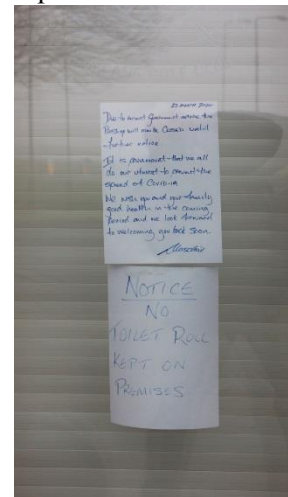 Due to recent Government advice the
will remain Closed until
further notice.
It is paramount that we all
do our utmost to the
spread of
We wish you and your family
good health in the coming
period and we look forward
to welcoming you back soon.
NOTICE
NO
TOILET ROLL
KEPT ON
PREMISES